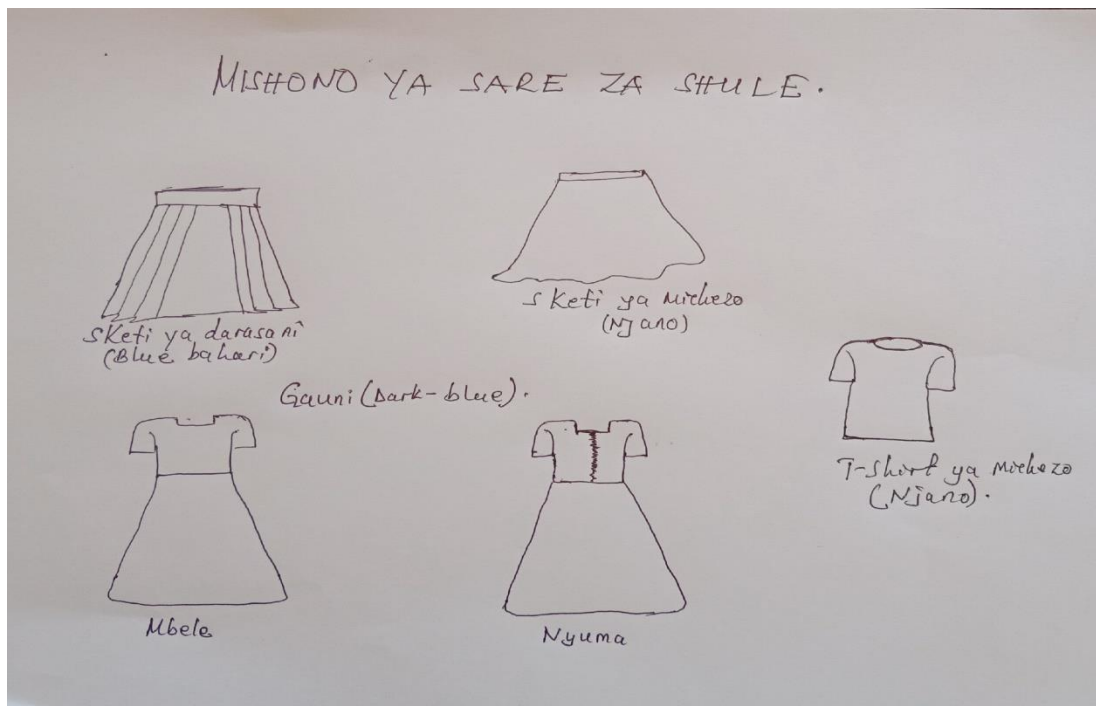 MISHONO YA SARE ZA SHULE.
Sketi ya darasani
(Blue bahari)
Sketi ya michezo
(Njano)
Gauni (Dark-blue).
T-shirt ya michezo
(Njano).
Mbele
Nyuma